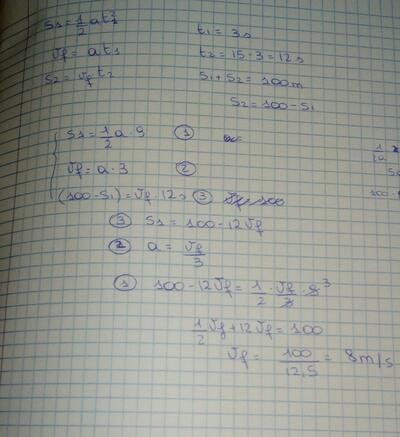 S1 = 1/2 a t1²
t1 = 3s
Vf = a t1
t2 = 15 - 3 = 12s
S2 = Vf · t2
S1 + S2 = 100m
S2 = 100 - S1
S1 = 1/2 a · 9 ①
Vf = a · 3 ②
(100 - S1) = Vf · 12 ③
③ S1 = 100 - 12Vf
② a = Vf/3
① 100 - 12Vf = 1/2 · Vf/3 · 9 3
1/2 Vf + 12Vf = 100
Vf = 100/12,5 = 8m/s